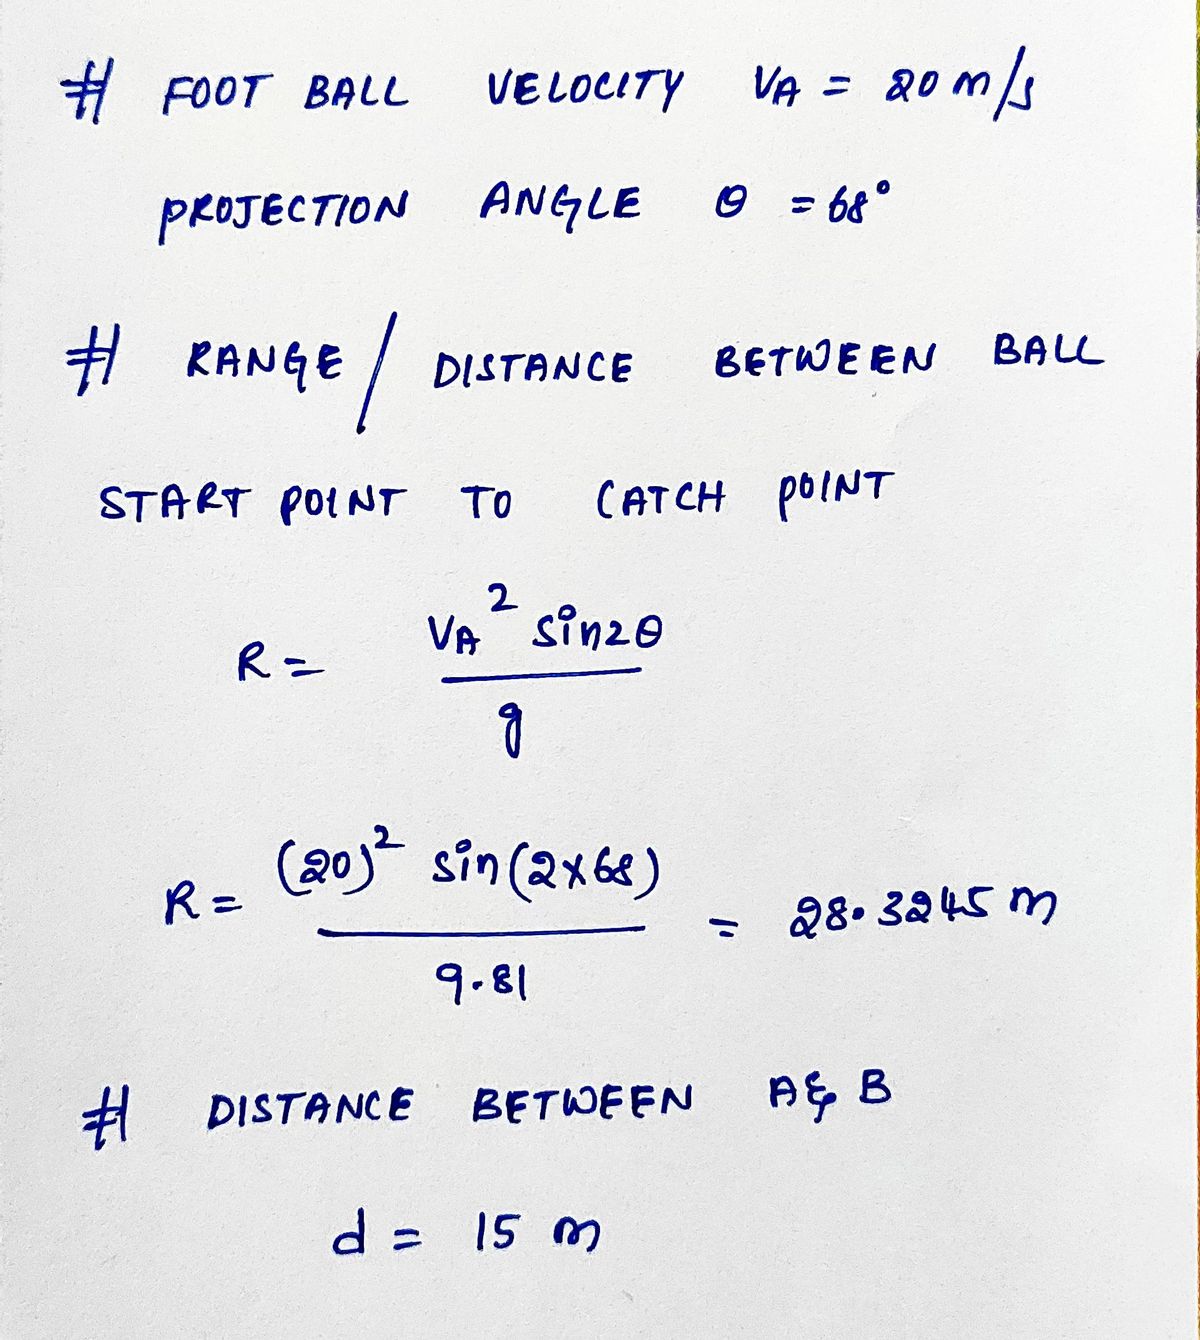 # FOOT BALL VELOCITY VA = 20 m/s
PROJECTION ANGLE θ = 68°
# RANGE / DISTANCE BETWEEN BALL
START POINT TO CATCH POINT
R = VA² sin2θ / g
R = (20)² sin(2×68) / 9.81 = 28.3245 m
# DISTANCE BETWEEN A & B
d = 15 m